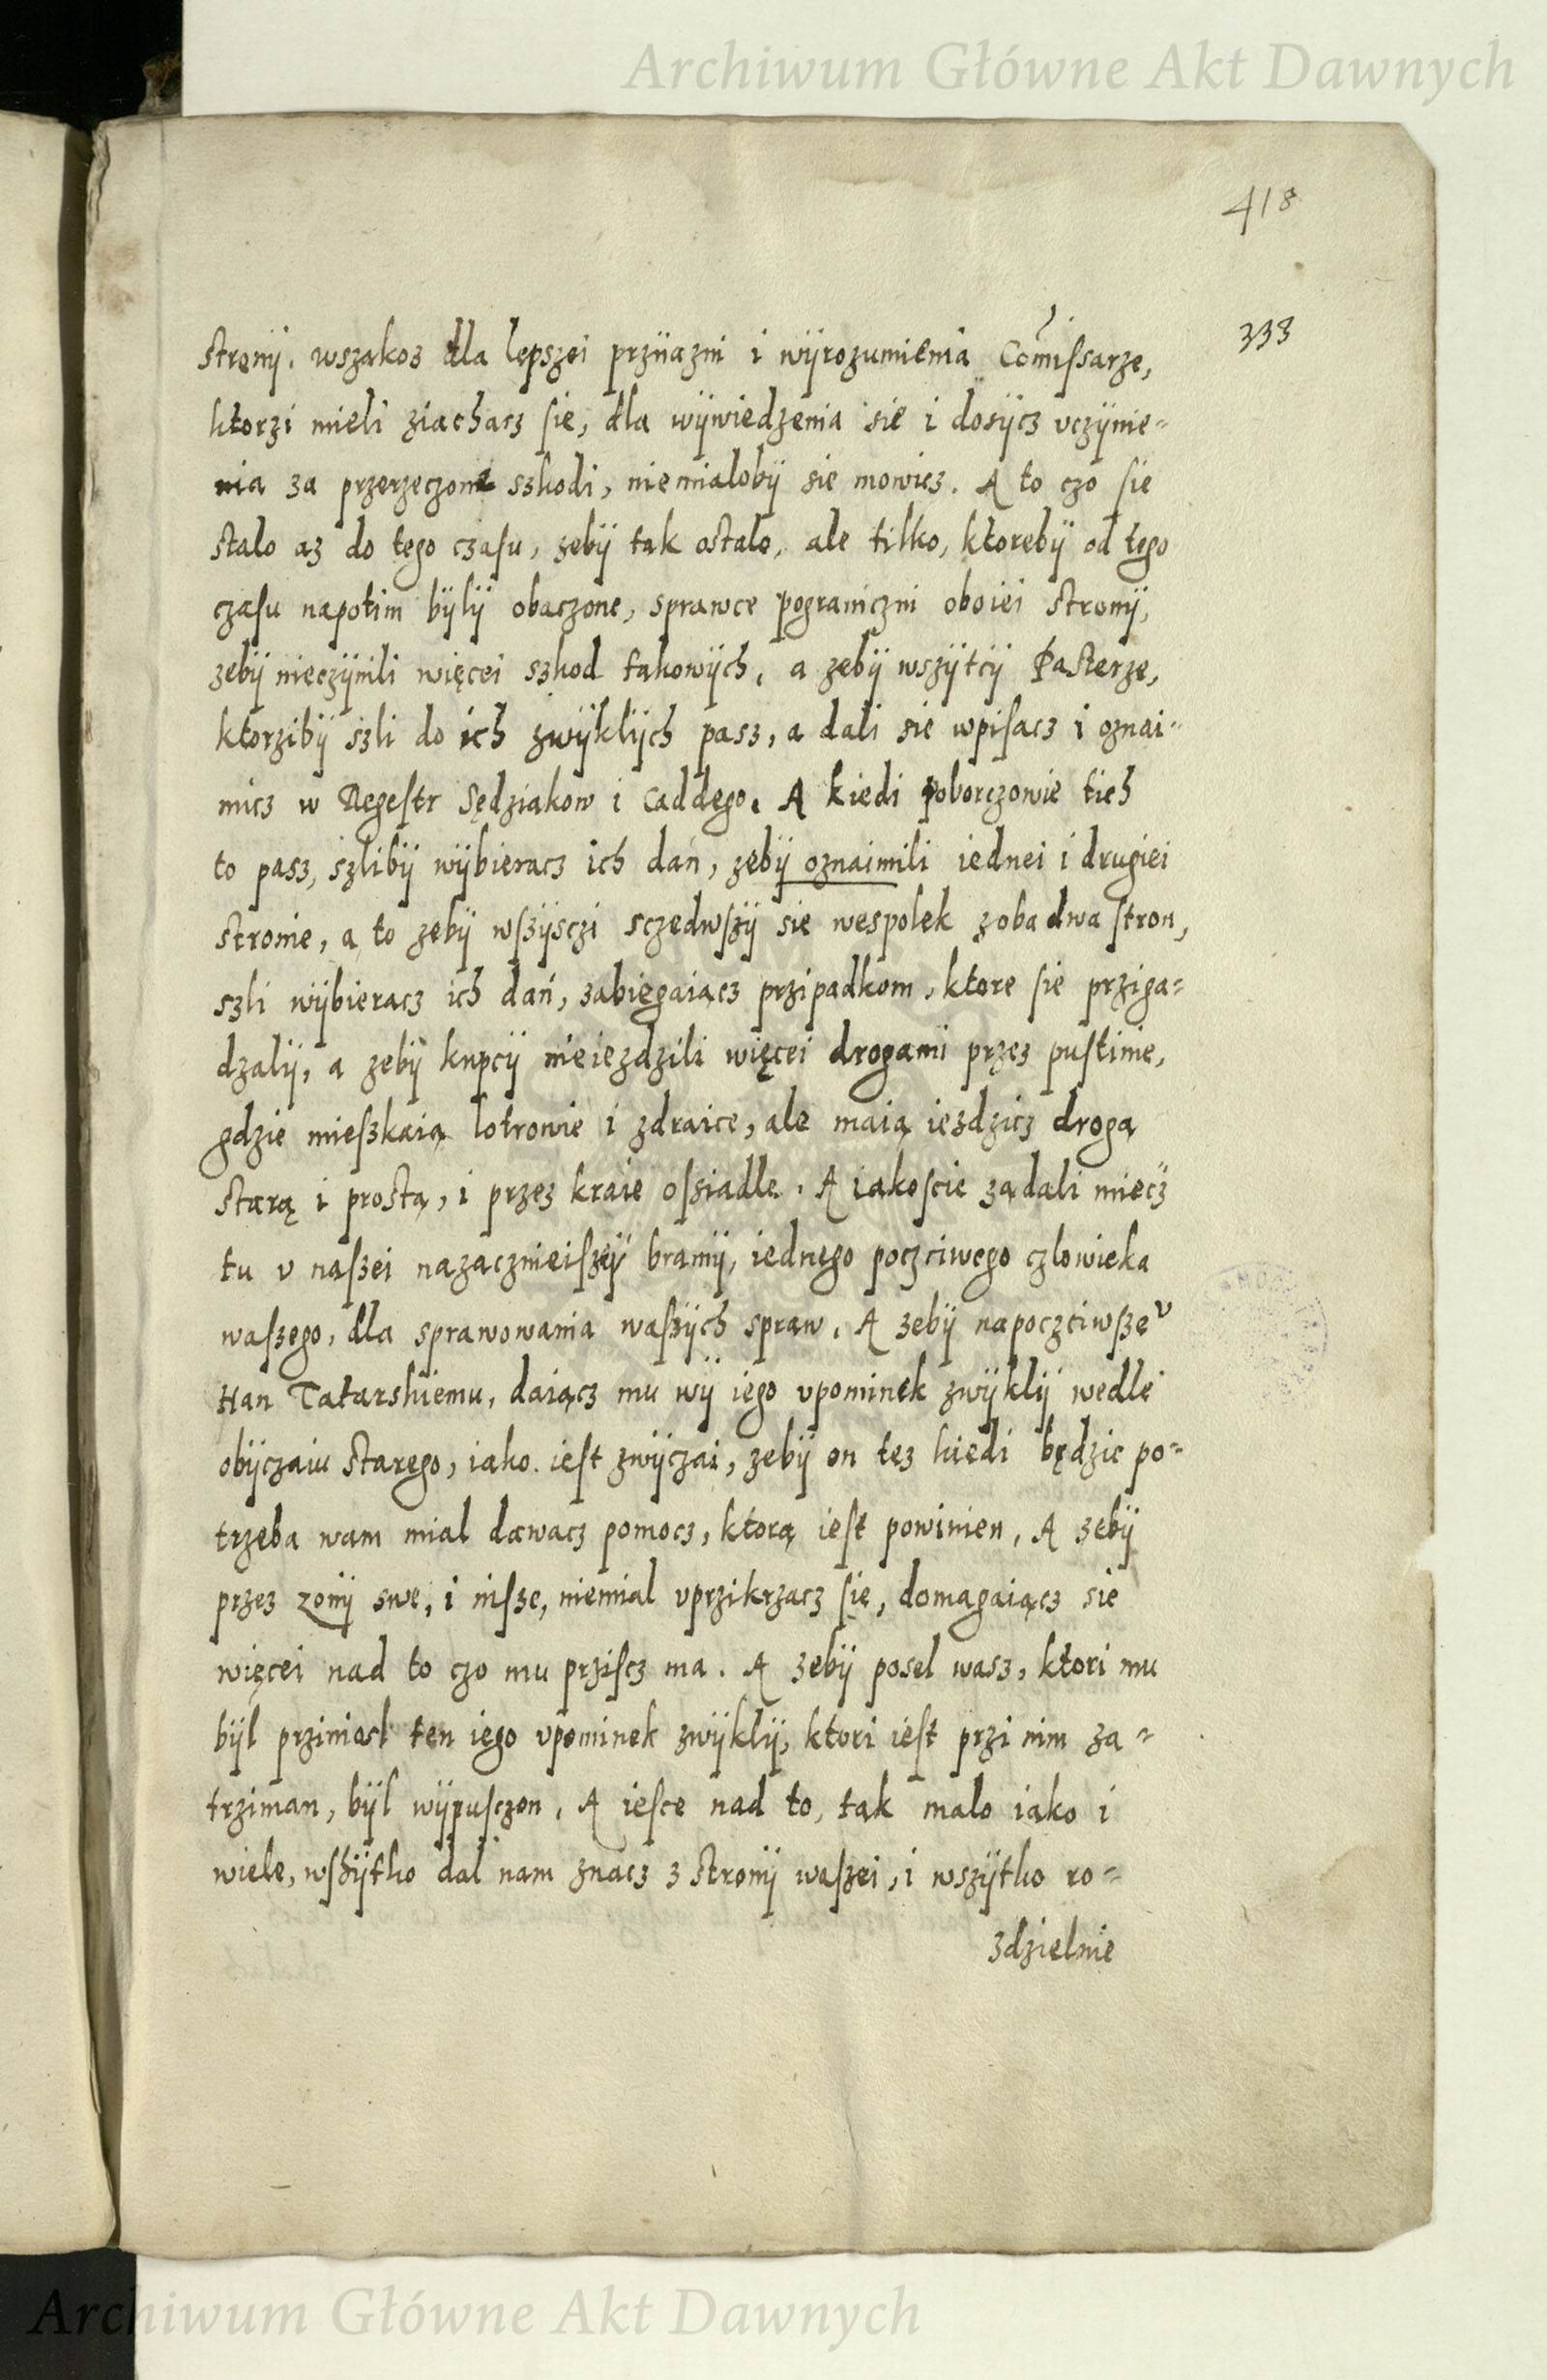 Archiwum Główne Akt Dawnych
418
333
stronÿ. wszakosz dla lepszei prziiazni i wÿrozumienia Comissarze,
ktorzi mieli ziachacz sie, dla wÿwiedzenia sie i dosÿcz vczÿnie=
nia za przerzeczone szkodi, niemialobÿ sie mowicz. A to czo sie
stalo az do tego czasu, zebÿ tak ostalo, ale tilko, ktorebÿ od tego
czasu napotim bÿlÿ obaczone, sprawce pograniczni oboiei stronÿ,
zebÿ nieczÿnili więcei szkod takowÿch, a zebÿ wszÿtcÿ Pasterze,
ktorzibÿ szli do ich zwÿklÿch pasz, a dali sie wpisacz i oznai=
micz w Regestr Sędziakow i Caddego. A kiedi poborczowie tich
to pasz, szlibÿ wÿbieracz ich dań, zebÿ oznaimili iednei i drugiei
stronie, a to zebÿ wszÿsczi sczedwszÿ sie wespolek zobadwa stron,
szli wÿbieracz ich dań, zabiegaiącz przipadkom, ktore sie prziga=
dzalÿ, a zebÿ kupcÿ nieiezdzili więcei drogami przez pustinie,
gdzie mieszkaią lotrowie i zdraice, ale maią iezdzicz drogą
starą i prostą, i przez kraie ossiadle. A iakoscie ządali miecz
tu v naszei nazacznieiszeÿ bramÿ, iednego poczciwego czlowieka
waszego, dla sprawowania waszÿch spraw. A zebÿ napoczciwszeᵛ
Han Tatarskiemu, daiącz mu wÿ iego vpominek zwÿklÿ wedle
obÿczaiu starego, iako iest zwÿczai, zebÿ on tez kiedi będzie po=
trzeba wam mial dawacz pomocz, ktorą iest powinien. A zebÿ
przez zonÿ swe, i insze, niemial vprzikrzacz się, domagaiącz sie
więcei nad to czo mu prziscz ma. A zebÿ posel wasz, ktori mu
bÿl prziniosl ten iego vpominek zwÿklÿ, ktori iest przi nim za=
trziman, bÿl wÿpusczon. A iesce nad to, tak malo iako i
wiele, wszÿtko dal nam znacz z stronÿ waszei, i wszÿtko ro=
zdzielnie
Archiwum Główne Akt Dawnych